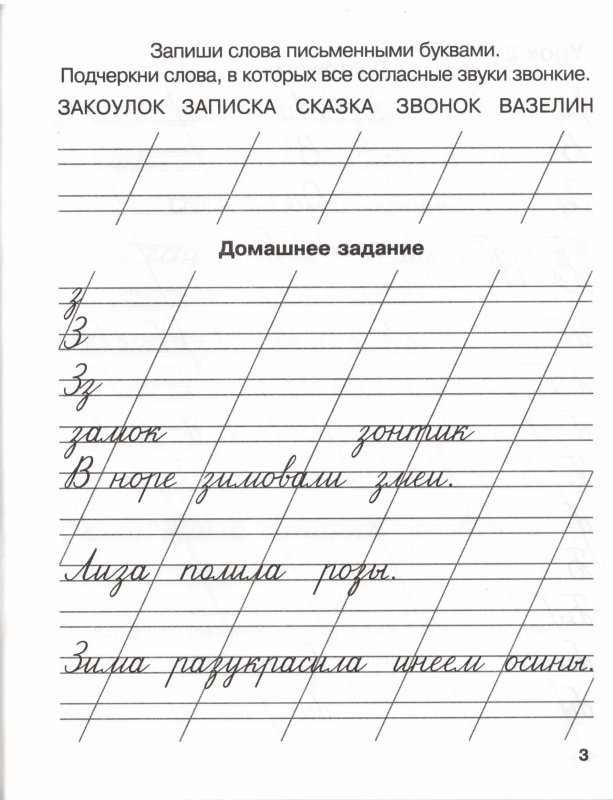 Запиши слова письменными буквами.
Подчеркни слова, в которых все согласные звуки звонкие.
ЗАКОУЛОК ЗАПИСКА СКАЗКА ЗВОНОК ВАЗЕЛИН
Домашнее задание
з
З
Зз
замок зонтик
В норе зимовали змеи.
Лиза полила розы.
Зима разукрасила инеем осины.
3